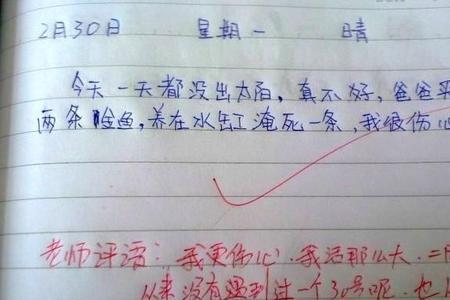 2月30日 星期一 晴
今天一天都没出太阳，真不好，爸爸买
两条鲶鱼，养在水缸淹死一条，我很伤心
老师评语：我更伤心．我活那么大．二月
从来没有遇到过一个30号呢．也